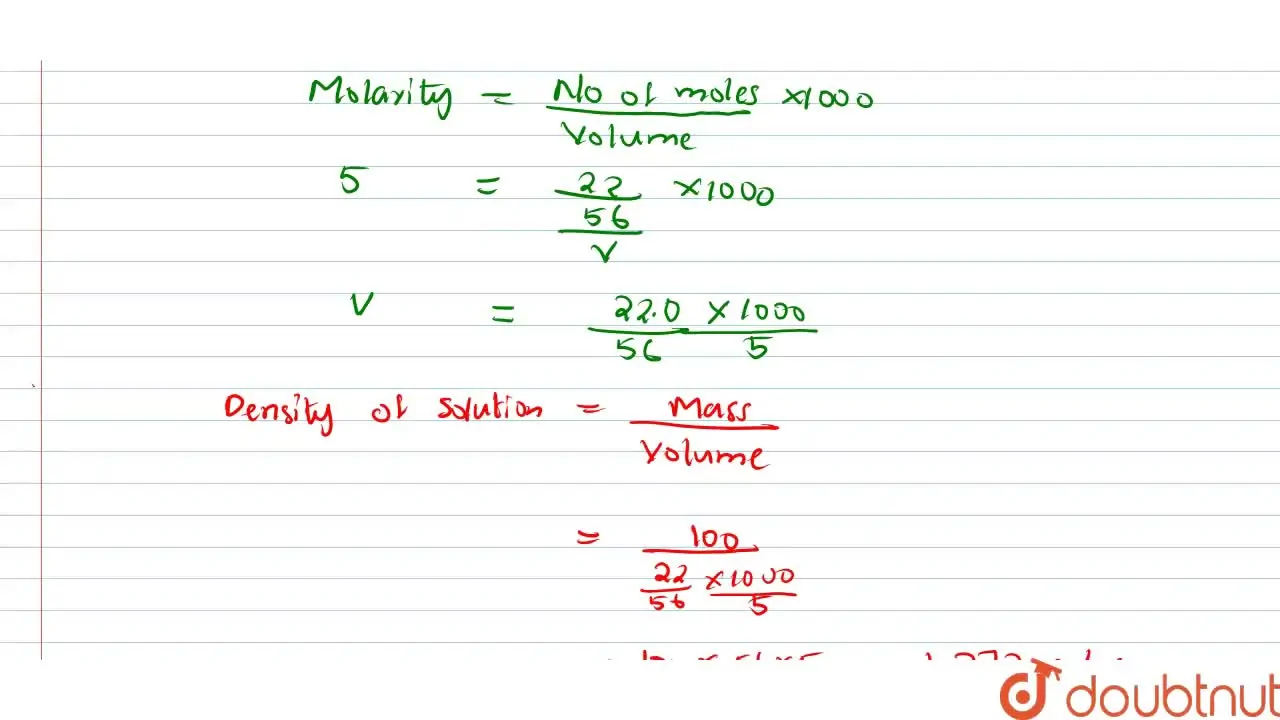 Molarity = No of moles ×1000
Volume
5 = 22 ×1000
56
V
V = 22.0 ×1000
56 5
Density of solution = Mass
Volume
= 100
22 ×1000
56 5
doubtnut